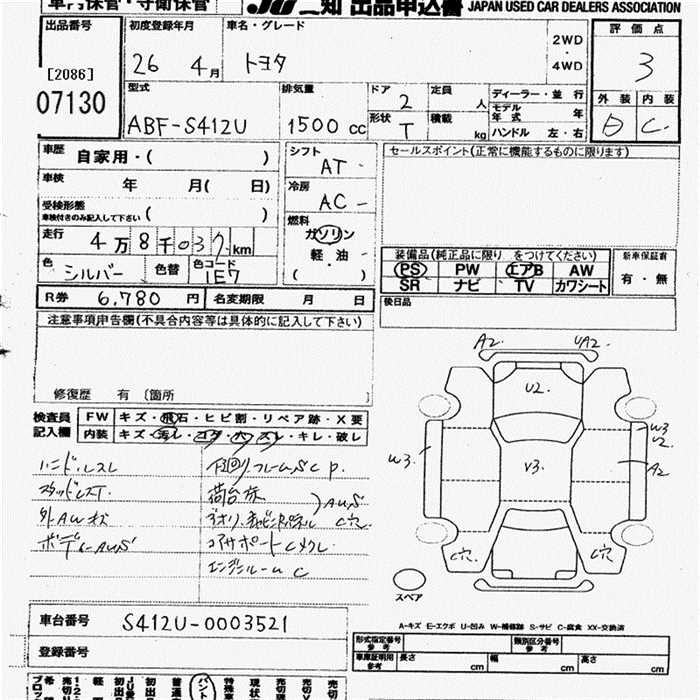 車内保管・守衛保管
JU 愛知 出品申込書 JAPAN USED CAR DEALERS ASSOCIATION
出品番号
[2086]
07130
初度登録年月
26 4月
車名・グレード
トヨタ
2WD
・
4WD
評価点
3
外装 内装
D C
型式
ABF-S412U
排気量
1500 cc
ドア
2
形状
T
定員
人
積載
kg
ディーラー・並行
モデル年式 年
ハンドル 左・右
車歴
自家用・( )
車検
年 月( 日)
受検形態
車検付きのみ記入して下さい ( )
走行
4万8千037km
色
シルバー
色替
色コード
1E7
R券
6,780 円
名変期限 月 日
シフト
AT
冷房
AC
燃料
ガソリン
軽・油
( )
セールスポイント(正常に機能するものに限ります)
装備品(純正品に限り をつけてください)
PS PW エアB AW
SR ナビ TV カワシート
新車保証書
有・無
後日品
注意事項申告欄(不具合内容等は具体的に記入して下さい)
修復歴 有 〔箇所 〕
検査員記入欄
FW キズ・飛石・ヒビ割・リペア跡・X要
内装 キズ・汚レ・コゲ・穴・スレ・キレ・破レ
ハンドルスレ
スタッドレスT.
外AWキズ
下回り.フレームSCP.
コアサポートCメクレ
エンジンルームC
A2
UA2.
U2.
W3.
V3.
W3
U2.
A2
C穴.
C穴.
スペア
A-キズ E-エクボ U-凹み W-補修跡 S-サビ C-腐食 XX-交換済
車台番号
S412U-0003521
登録番号
形式指定番号
参考
類別区分番号
参考
車庫証明用
参考
長さ cm
幅 cm
高さ cm